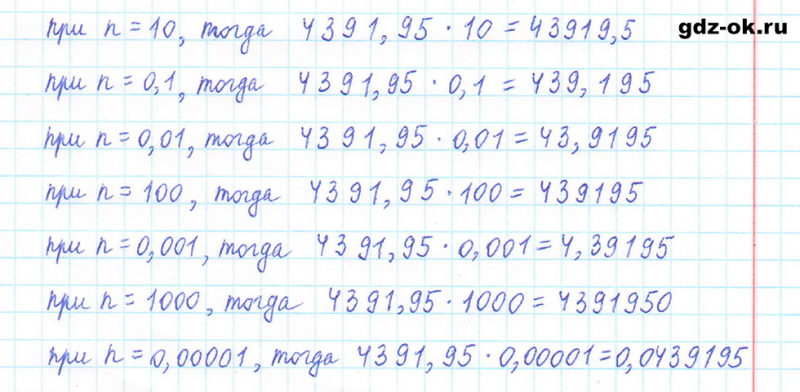 при n = 10, тогда 4391,95 · 10 = 43919,5
gdz-ok.ru
при n = 0,1, тогда 4391,95 · 0,1 = 439,195
при n = 0,01, тогда 4391,95 · 0,01 = 43,9195
при n = 100, тогда 4391,95 · 100 = 439195
при n = 0,001, тогда 4391,95 · 0,001 = 4,39195
при n = 1000, тогда 4391,95 · 1000 = 4391950
при n = 0,00001, тогда 4391,95 · 0,00001 = 0,0439195